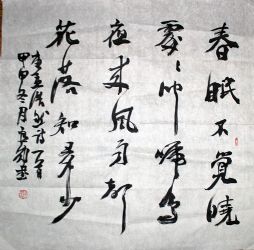 春眠不覺曉
處々聞啼鳥
夜来風雨聲
花落知多少
孟浩然詩一首
甲申冬月